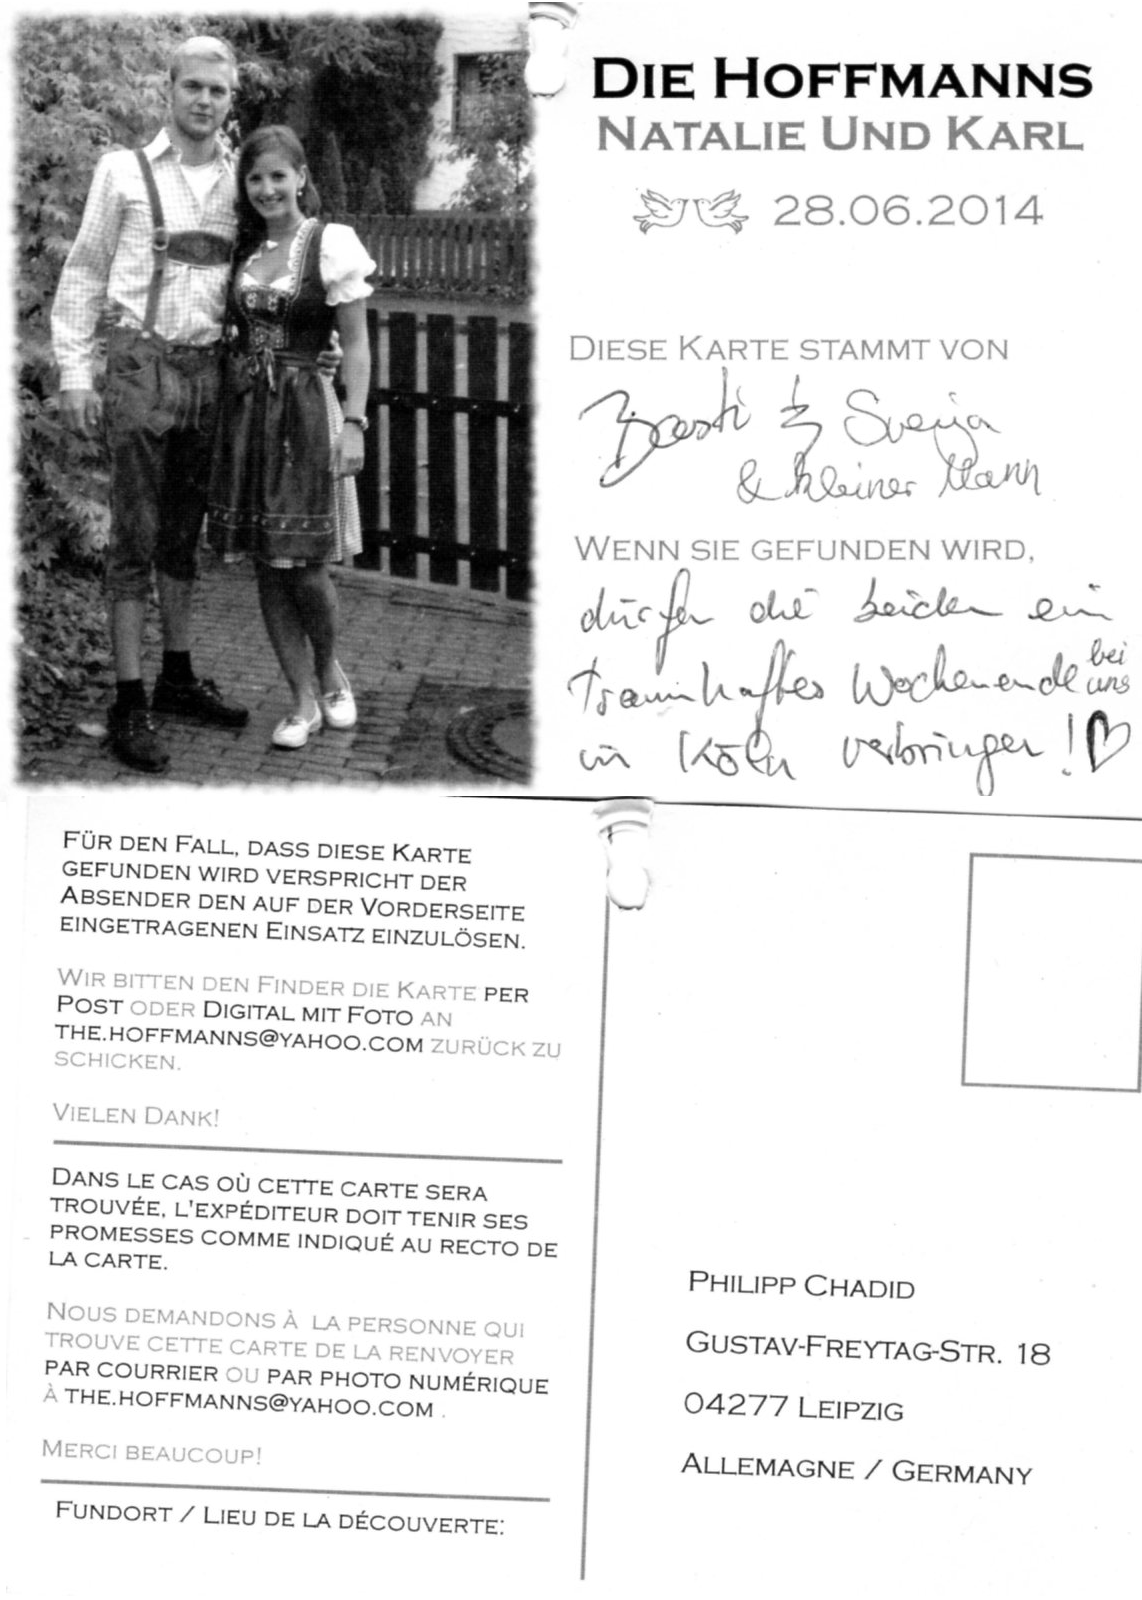 DIE HOFFMANNS
NATALIE UND KARL
28.06.2014
DIESE KARTE STAMMT VON
Basti & Svenja
& kleiner Mann
WENN SIE GEFUNDEN WIRD,
dürfen die beiden ein
traumhaftes Wochenende bei uns
in Köln verbringen! ♡
FÜR DEN FALL, DASS DIESE KARTE
GEFUNDEN WIRD VERSPRICHT DER
ABSENDER DEN AUF DER VORDERSEITE
EINGETRAGENEN EINSATZ EINZULÖSEN.
WIR BITTEN DEN FINDER DIE KARTE PER
POST ODER DIGITAL MIT FOTO AN
THE.HOFFMANNS@YAHOO.COM ZURÜCK ZU
SCHICKEN.
VIELEN DANK!
DANS LE CAS OÙ CETTE CARTE SERA
TROUVÉE, L'EXPÉDITEUR DOIT TENIR SES
PROMESSES COMME INDIQUÉ AU RECTO DE
LA CARTE.
NOUS DEMANDONS À LA PERSONNE QUI
TROUVE CETTE CARTE DE LA RENVOYER
PAR COURRIER OU PAR PHOTO NUMÉRIQUE
À THE.HOFFMANNS@YAHOO.COM .
MERCI BEAUCOUP!
FUNDORT / LIEU DE LA DÉCOUVERTE:
PHILIPP CHADID
GUSTAV-FREYTAG-STR. 18
04277 LEIPZIG
ALLEMAGNE / GERMANY